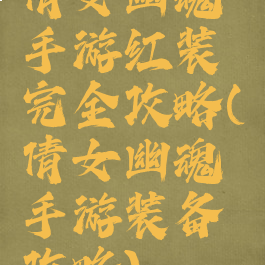 倩女幽魂
手游红装
完全攻略(
倩女幽魂
手游装备
攻略)